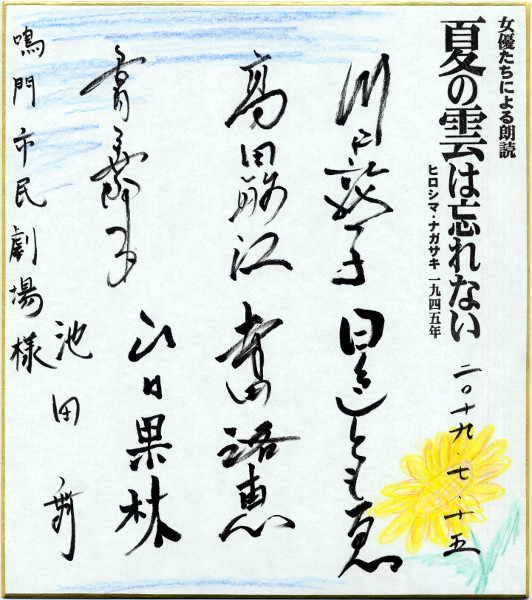 女優たちによる朗読
夏の雲は忘れない
ヒロシマ・ナガサキ 一九四五年
二〇十九・七・十五
川口敦子
日色ともゑ
高田敏江
寺田路恵
山口果林
池田
鳴門市民劇場様